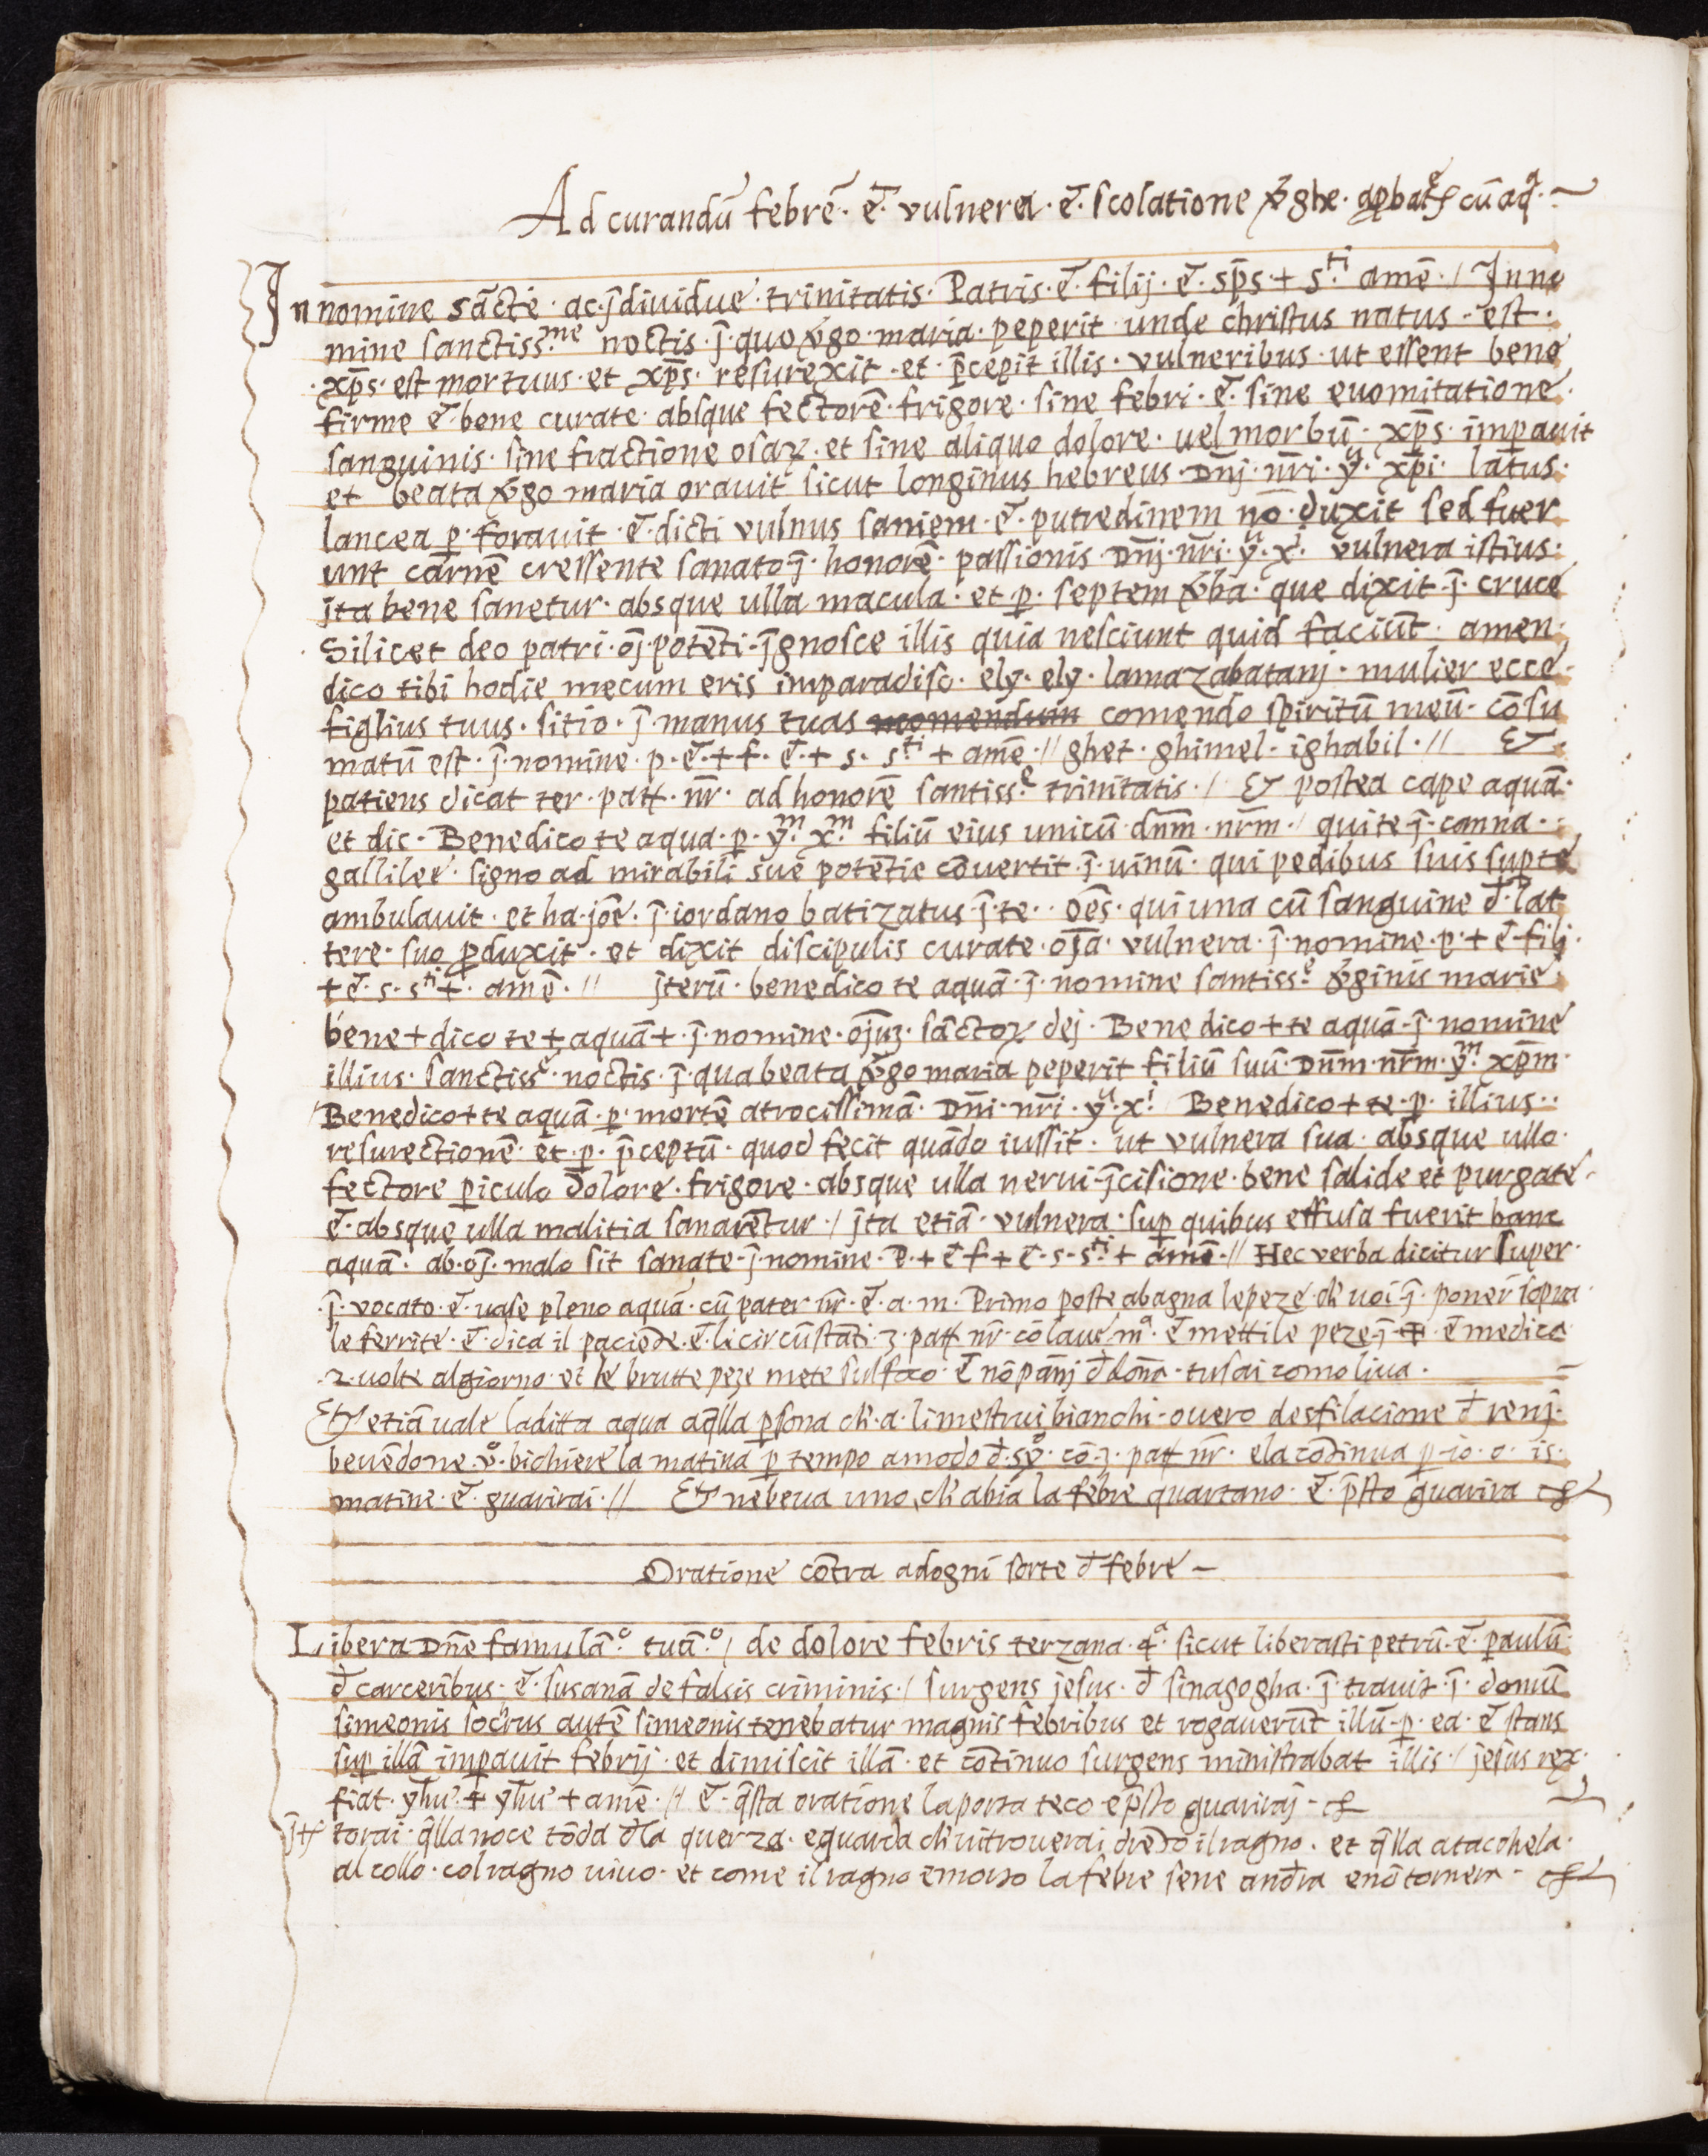 Ad curandū febrē · ē · vulnera · ē · scolatione v̄ghe · apbat͡e cū aqᵃ
In nomine sācte · ac · j̄diuidue · trinitatis · Patris · ē · filij · ē · sp̄s · + sᵗⁱ amē · / In no
mine sanctiss.ᵐᵉ noctis · j̄ · quo v̄go · maria · peperit · unde christus natus · est ·
· xp̄s · est mortuus · et xp̄s · resurexit · et · p̄cepit illis · vulneribus · ut essent bene
firme ē · bene curate · absque fectorē · frigore · sine febri · ē · sine euomitatione ·
sanguinis · sine fractione osaꝝ · et sine aliquo dolore · uel morbū · xp̄s · imꝑauit
et beata v̄go maria orauit sicut longinus hebreus · Dn̄j · nr̄i · yᵘ · xp̄i · latus ·
lancea ꝑ · forauit · ē · dicti vulnus saniem · ē · putredinem nō · duxit sed fuer
unt carnē cressente sanato · j̄ · honorē · passionis Dn̄j · nr̄i · yᵘ · xⁱ · vulnera istius ·
jta bene sanetur · absque ulla macula · et ꝑ · septem v̄ba · que dixit · j̄ · cruce
· Silicet deo patri · oj̄ · potēti · j̄gnosce illis quia nesciunt quid faciūt · amen ·
dico tibi hodie mecum eris imparadiso · ely · ely · lamazabatanj · mulier ecce ·
figlius tuus · sitio · j̄ · manus tuas comendo spiritū meū · cōsu
matū est · j̄ · nomine · p · ē · + f · ē · + s · sᵗⁱ + amē · // ghet · ghimel · ighabil · // &
patiens dicat ter · patt · nr̄ · ad honorē santiss.ᵉ trinitatis · / & postea cape aquā ·
et dic · Benedico te aqua · ꝑ · yᵐ · xᵐ · filiū eius unicū · dnm̄ · nrm̄ · / qui te · j̄ · canna ·
gallilee · signo ad mirabili sue potētie cōuertit · j̄ · uinū · qui pedibus suis supte
ambulauit · et ha · joē · j̄ · iordano batizatus · j̄ · te · · oēs · qui una cū sanguine đ · lat
tere · suo ꝓduxit · et dixit discipulis curate · oj̄a · vulnera · j̄ · nomine · p · + ē · filj ·
+ ē · s · sᵗⁱ + · amē · // jterū · benedico te aquā · j̄ · nomine santiss.ᵉ v̄ginis marie
bene + dico te + aquā + · j̄ · nomine · oj̄uꝫ · sāctoꝝ dej · Benedico + te aquā · j̄ · nomine
illius · sanctissᵉ · noctis · j̄ · qua beata v̄go maria peperit filiū suū · Dnm̄ · nrm̄ · yᵐ · xp̄m ·
/ Benedico + te aquā · ꝑ · mortē atrocissimā · Dn̄i · nr̄i · yᵘ · xⁱ Benedico + te · ꝑ · illius · ·
resurectionē · et · ꝑ · p̄ceptū · quod fecit quādo iussit · ut vulnera sua · absque ullo ·
fectore ꝑiculo dolore · frigore · absque ulla nerui · j̄cisione · bene salide et purgate ·
ē · absque ulla malitia sanarētur · / jta etiā · vulnera · suꝑ quibus effusa fuerit hanc
aquā · ab · oj̄ · malo sit sanate · j̄ · nomine · P · + ē f + ē · s · sᵗⁱ · + amē · // Hec verba dicitur super ·
· j̄ · vocato · ē · uase pleno aqua · cū pater nr̄ · ē · a · m · Primo poste abagna le peze · ch' uoi j̄ · poner sopra ·
le ferrite · ē · dica il paciēte · ē · li circūstāti · 3 · patt nr̄ · cō l aue mᵃ · ē mettile peze · j̄ + · ē medica
· 2 · uolte al giorno · et le brutte peze mete sul foco · ē nō pānj đ dōna · tu sai como liua ·
& etiā uale la ditta aqua aq̄lla ꝑsona ch' · a · li mestrui bianchi · ouero desfilacione đ renj ·
beuēdone · v̊ · bichiere la matina ꝑ tempo amodo đ · syᵒ · cō · 3 · patt nr̄ · e la cōtinua ꝑ · 10 · o · 15 ·
matine · ē · guarirai · // & ne beua uno, ch' abia la febre quartano · ē · p̄sto guarira
Oratione cōtra adogni sorte đ febre —
Libera Dn̄e famulā.ᵒ tuā.ᵒ / de dolore febris terzana · 4ᵃ · sicut liberasti petrū · ē · paulū
đ carceribus · ē · susanā de falsis criminis · / surgens jesus · đ sinagogha · j̄ · trauit · j̄ · domū
simeonis socrus autē simeonis tenebatur magnis febribus et rogauerūt illū · ꝑ · ea · ē stans
suꝑ illā imꝑauit febrij · et dimiscit illā · et cōtinuo surgens ministrabat illis · / jesus rex ·
fiat · yhu' · + yhu' + amē · // ē · q̄sta oratione la porta teco e p̄sto guariraj ·
jt torai · q̄lla noce tōda đ la querza · e guarda ch' ui trouerai drēto il ragno · et q̄lla atacchela ·
al collo · col ragno uiuo · et come il ragno e morto la febre sene andra e nō tornera ·